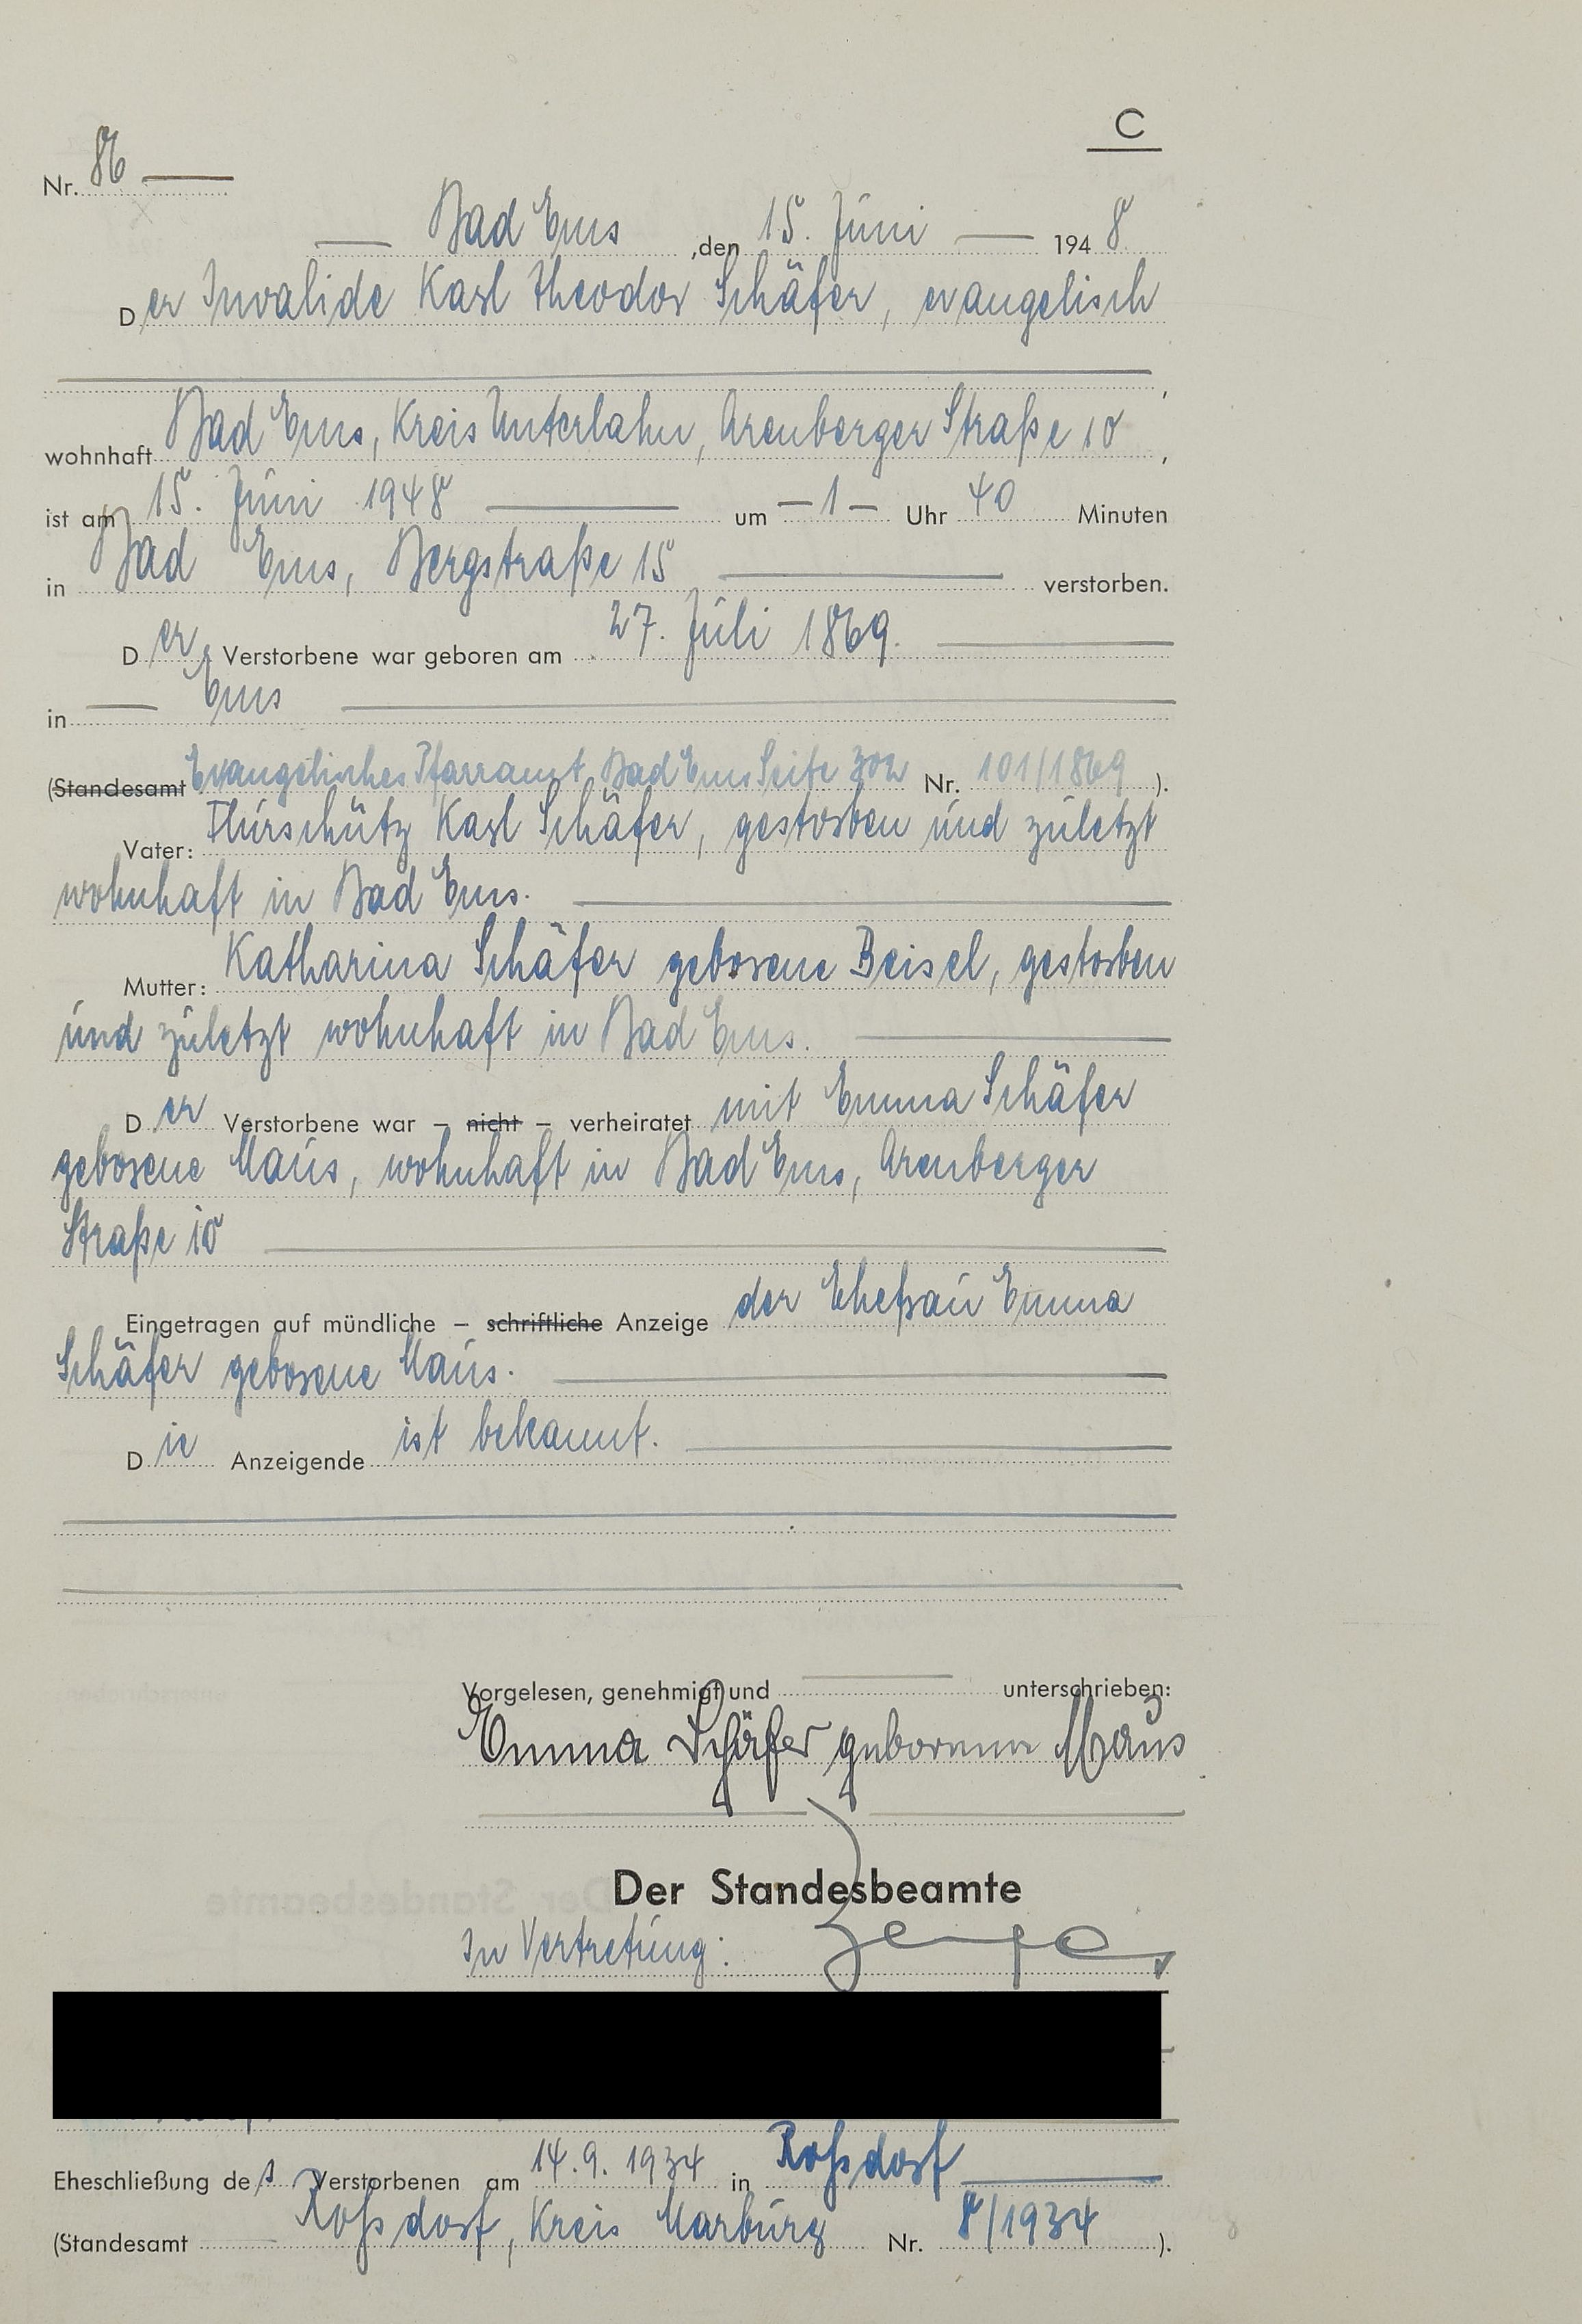 C
Nr. 86
Bad Ems, den 15. Juni 1948
Der Invalide Karl Theodor Schäfer, evangelisch
,
wohnhaft Bad Ems, Kreis Unterlahn, Arenberger Straße 10,
ist am 15. Juni 1948 um - 1 - Uhr 40 Minuten
in Bad Ems, Bergstraße 15 verstorben.
Der Verstorbene war geboren am 27. Juli 1869.
in Ems
(Standesamt Evangelisches Pfarramt Bad Ems Seite 302 Nr. 101/1869).
Vater: Flurschütz Karl Schäfer, gestorben und zuletzt
wohnhaft in Bad Ems.
Mutter: Katharina Schäfer geborene Beisel, gestorben
und zuletzt wohnhaft in Bad Ems.
Der Verstorbene war – nicht – verheiratet mit Emma Schäfer
geborene Maus, wohnhaft in Bad Ems, Arenberger
Straße 10
Eingetragen auf mündliche – schriftliche Anzeige der Ehefrau Emma
Schäfer geborene Maus.
Die Anzeigende ist bekannt.
Vorgelesen, genehmigt und unterschrieben:
Emma Schäfer geborene Maus
Der Standesbeamte
In Vertretung:
Eheschließung des Verstorbenen am 14.9.1934 in Roßdorf
(Standesamt Roßdorf, Kreis Marburg Nr. 8/1934).